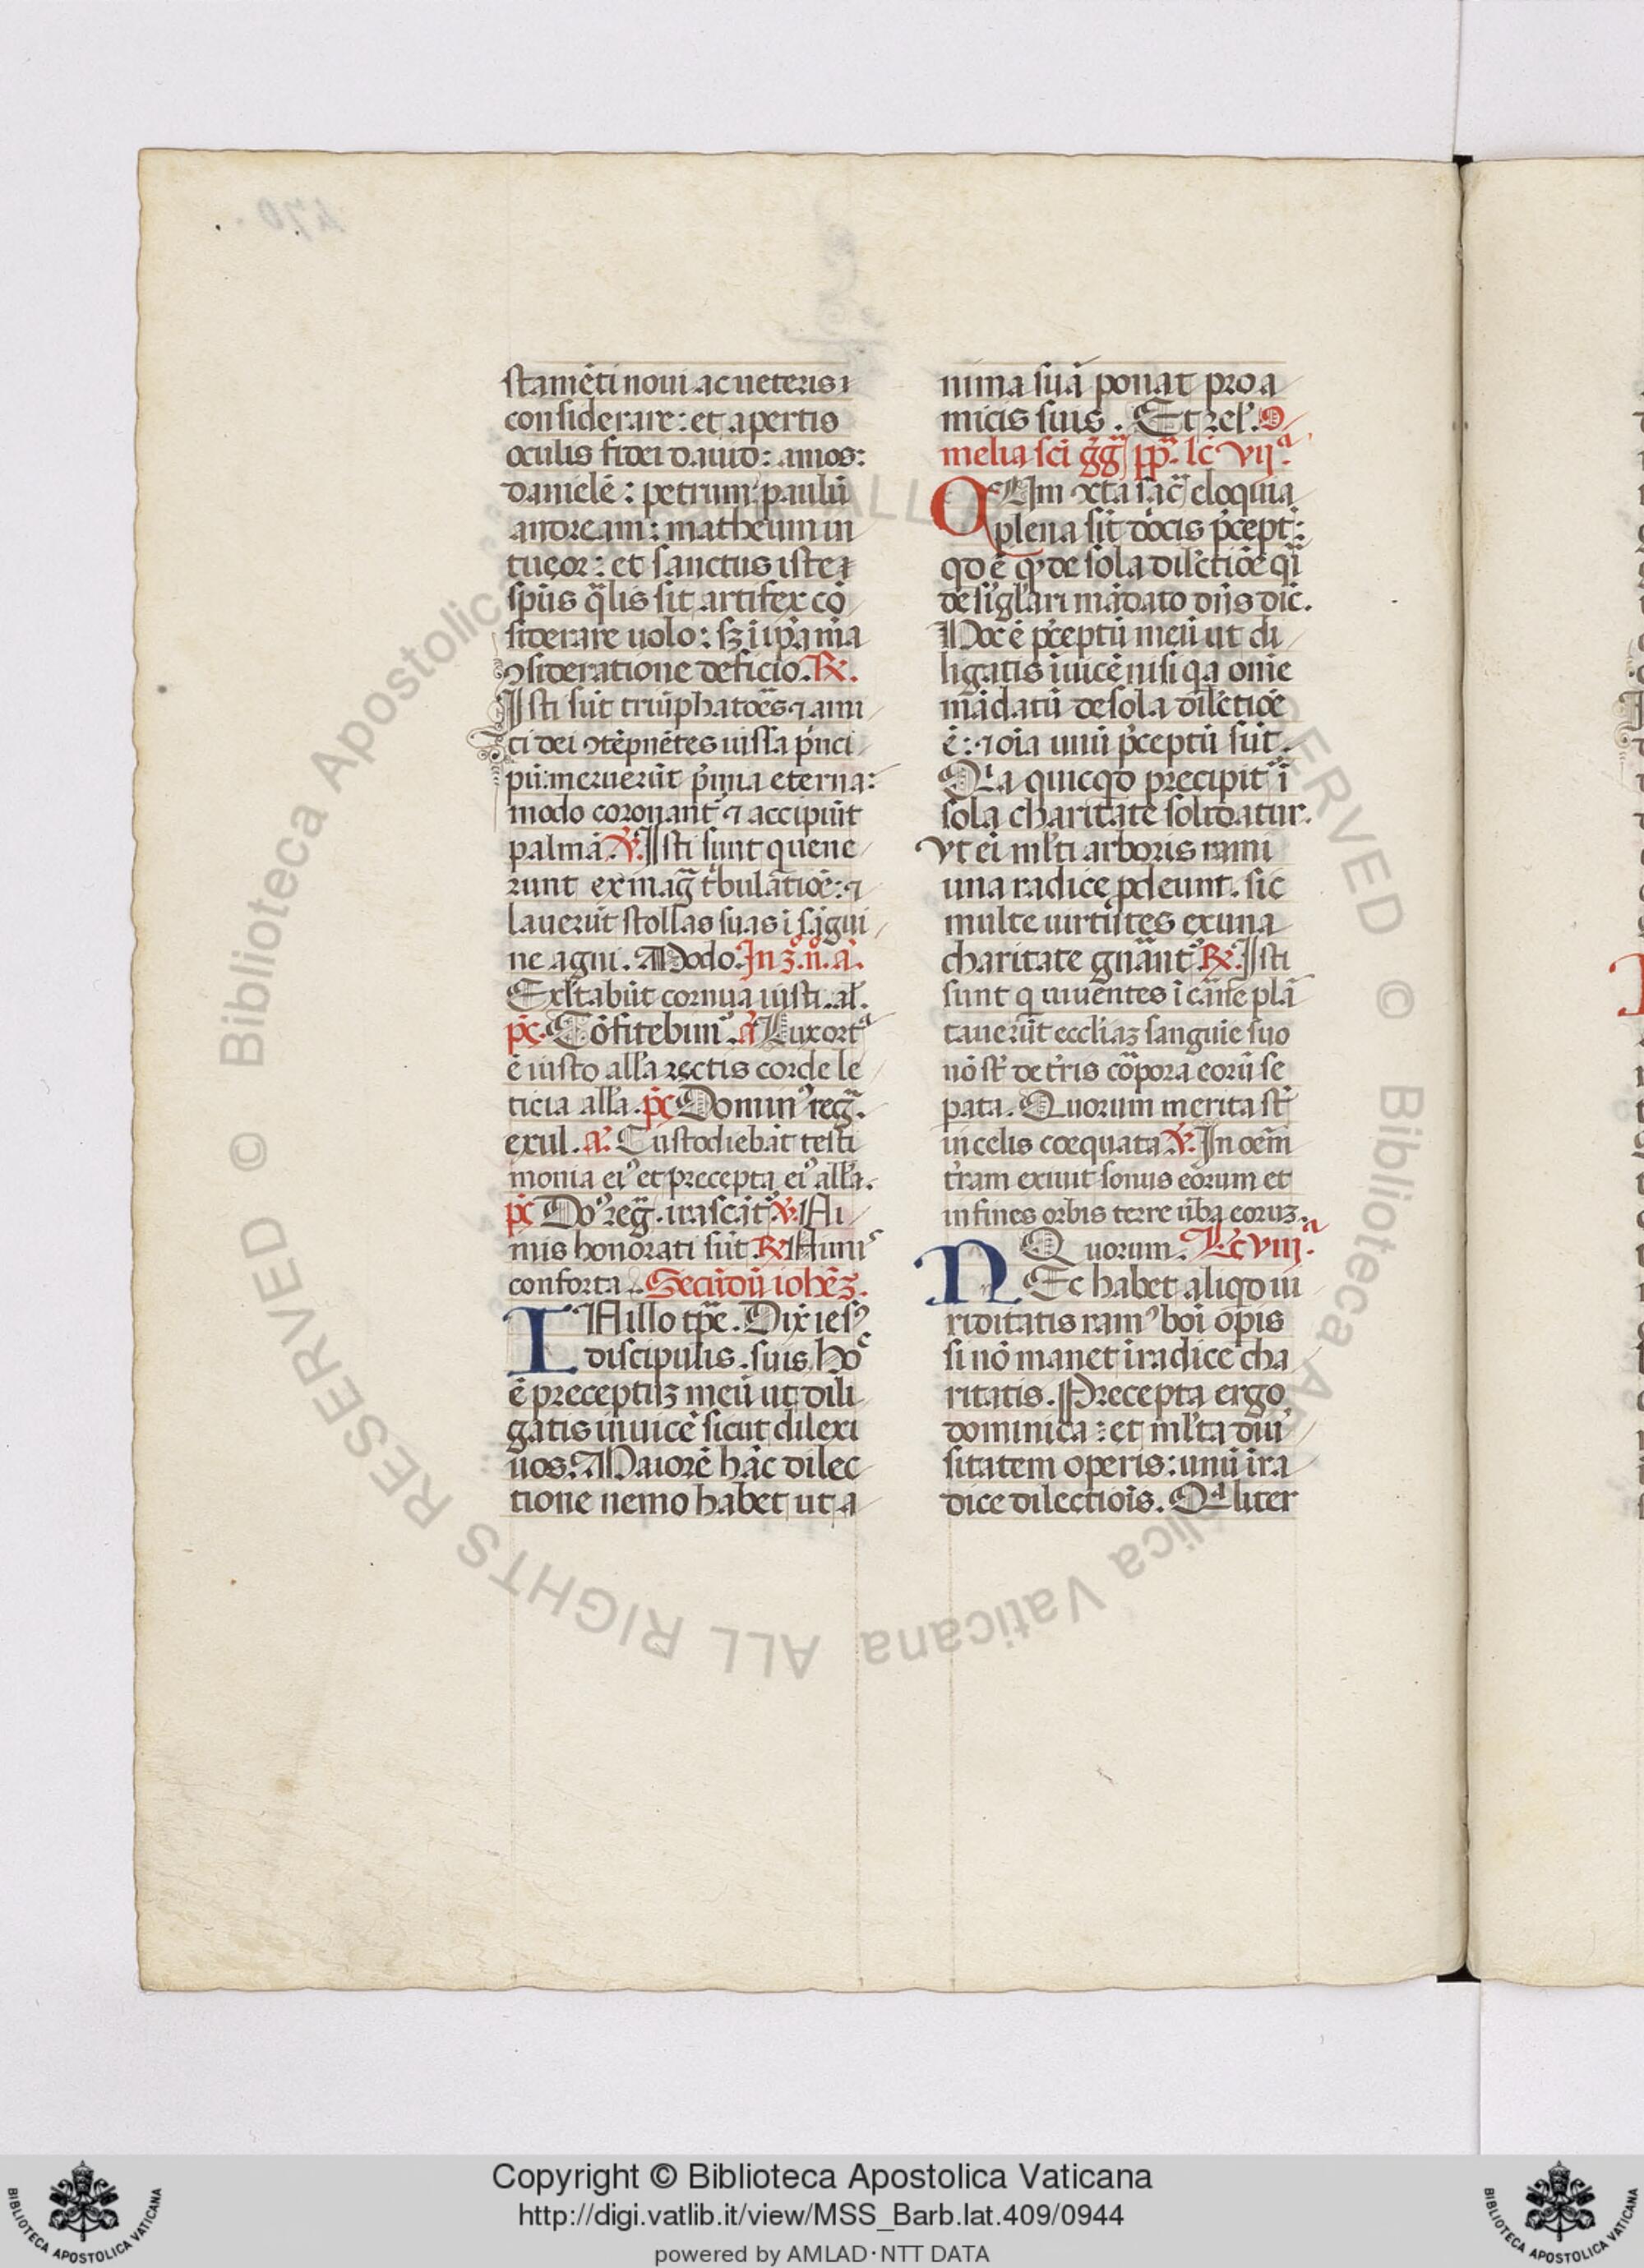 stamēti noui ac ueteris ⁊
considerare: et apertis
oculis fidei dauid: amos:
danielē: petrum: paulū
andream: matheum in
tueor: et sanctus iste
spūs q̄lis sit artifex cō
siderare uolo: sꝫ ī ip̄a mīa
ꝯsideratione deficio. ℟.
Isti sūt triūphatoēs ⁊ ami
ci dei ꝯtēpnētes iussa pͥnci
pū: meruerūt p̄mia eterna:
modo coronant᷑ ⁊ accipiūt
palmā. ℣. Isti sunt q uene
runt ex maḡ tͥbulatiōe: ⁊
lauerūt stollas suas ī sāgui
ne agni. Modo. In 3º. nº. a͛.
Exl̓tabūt cornua iusti. al̓.
pͥs. Cōfitebim᷒. a͛ Lux ortᵃ
ē iusto all̓a rectis corde le
ticia all̓a. pͥs Domin᷒ reḡ.
exul. a͛. Custodiebāt testi
monia ei᷒ et precepta ei᷒ all̓a.
pͥs Do᷒ reḡ. irascāt᷑ ℣. Ni
mis honorati sūt ℟ Nimis
conforta. Secūdū iohēꝫ.
IN illo tp̄e. Dix̄ ies᷒
discipulis suis. hoᶜ
ē preceptuꝫ meū ut dili
gatis inuicē sicut dilexi
uos. Maiorē hāc dilec
tione nemo habet ut a
nima suā ponat pro a
micis suis. Et rel̓. O
melia sc̄i gͥḡ pp̄. lc̄ vijᵃ.
CUm cūta sac̄ eloquia
plena sīt dōcis p̄cept᷑:
qd ē qꝫ de sola dilectiōe qͣi
de sīgl̓ari mādato dn̄s dic̄.
Hoc ē p̄ceptū meū ut di
ligatis īuicē nisi qa om̄e
mādatū de sola dilectiōe
ē: ⁊ oīa unū p̄ceptū sūt.
Qͥa quicqd precipit᷑ ī
sola charitate solidatur.
Vt ei ml̓ti arboris rami
una radice ꝓdeunt. sic
multe uirtutes ex una
charitate gn̄ant᷑ ℟. Isti
sunt q uiuentes ī carne plā
tauerūt eccl̓iaꝫ sanguīe suo
nō st̄ de tr̓is cōpora eorū se
pata. Quorum merita st̄
in celis coequata ℣. In oēm
tr̓am exiuit sonus eorum et
in fines orbis terre ūba eoruꝫ.
Quorum. Lc̄ viijᵃ.
NEc habet aliqd ui
riditatis ram᷒ boī opis
si nō manet ī radice cha
ritatis. Precepta ergo
dominica: et ml̓ta diū
sitatem operis: unū ī ra
dice dilectiōis. Qͣliter
Copyright © Biblioteca Apostolica Vaticana
http://digi.vatlib.it/view/MSS_Barb.lat.409/0944
powered by AMLAD·NTT DATA